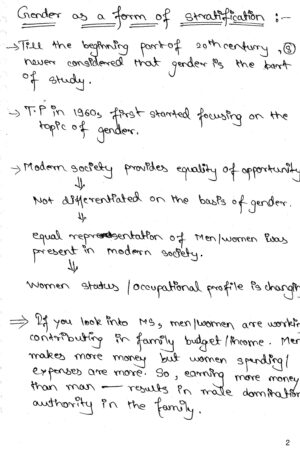 Gender as a form of stratification :-
→ Till the beginning part of 20th century, (S)
never considered that gender is the part
of study.
→ T.P in 1960s, first started focusing on the
topic of gender.
→ Modern society provides equality of opportunity
⇓
Not differentiated on the basis of gender.
⇓
equal representation of Men/women was
present in modern society.
⇓
Women status / occupational profile is changin
⇒ If you look into MS, men/women are workin
contributing in family budget/income. Men
makes more money but women spending/
expenses are more. So, earning more money
than man — results in male domination
authority in the family.
2